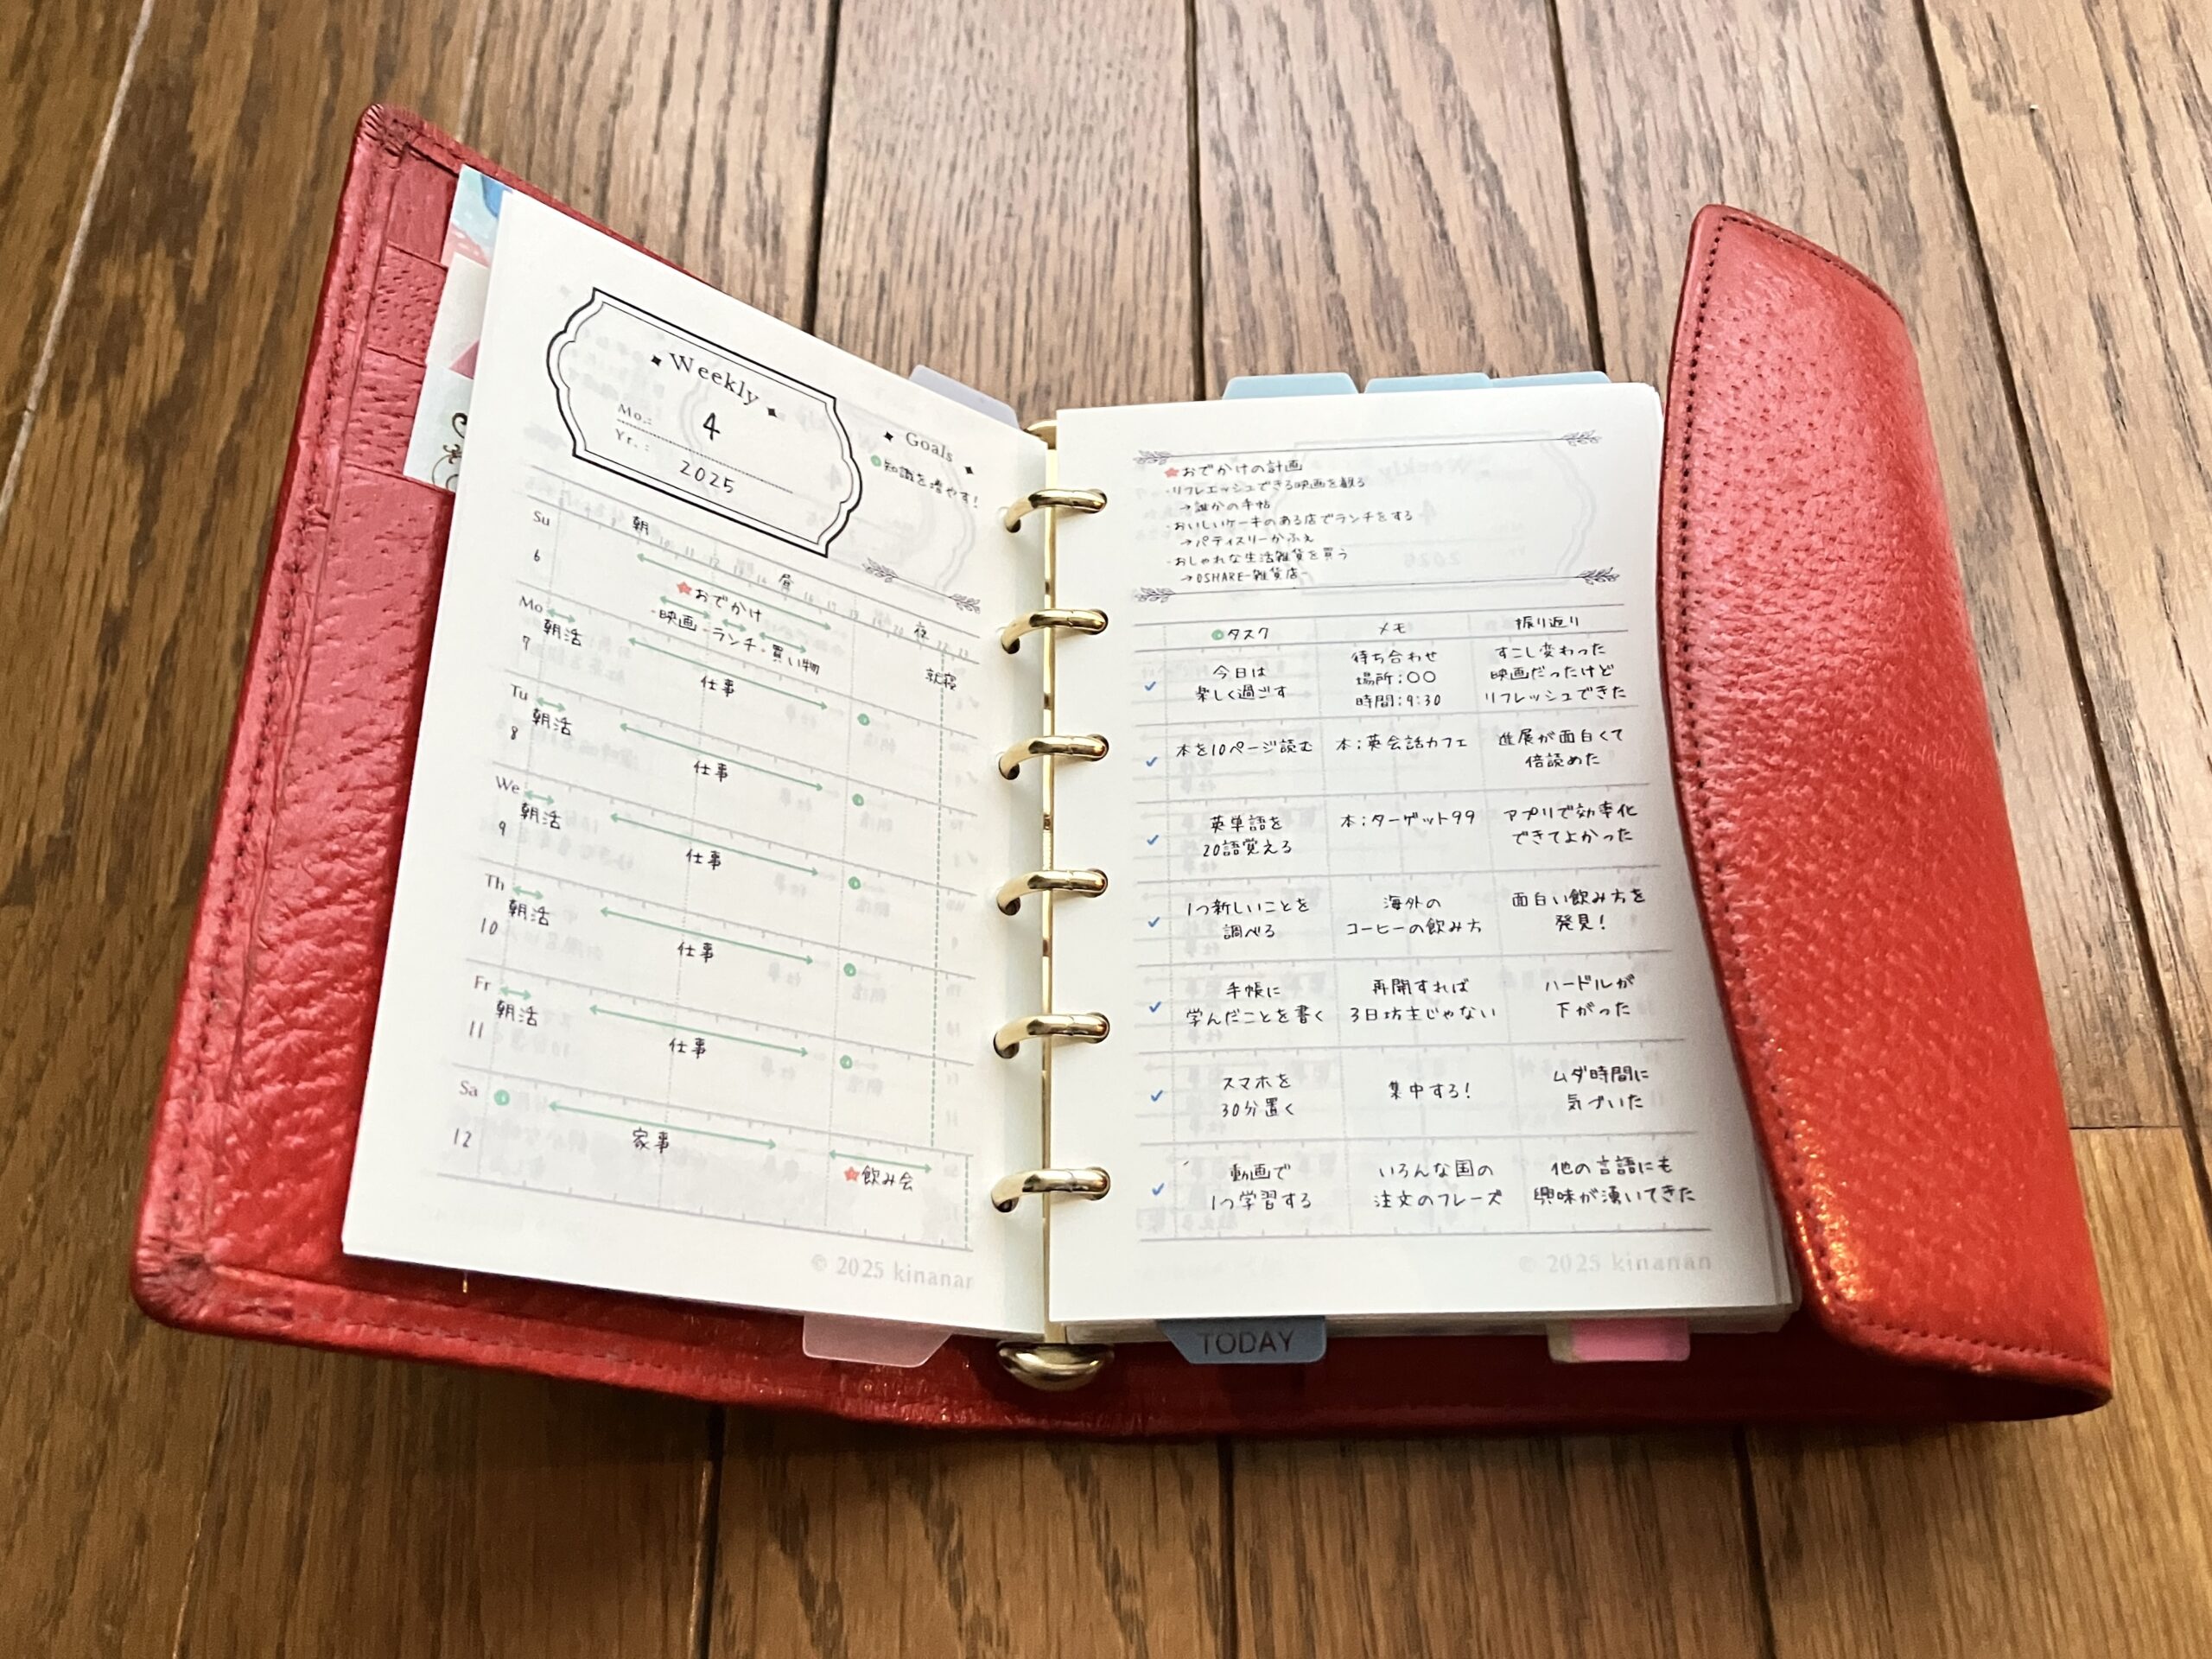 Weekly
Mo.: 4
Yr.: 2025
Goals
知識を増やす!
朝
昼
夜
就寝
Su
6
おでかけ
・映画・ランチ・買い物
Mo
7
朝活
仕事
Tu
8
朝活
仕事
We
9
朝活
仕事
Th
10
朝活
仕事
Fr
11
朝活
仕事
Sa
12
家事
飲み会
© 2025 kinanan
おでかけの計画
・リフレエッシュできる映画を観る
→誰かの手帖
・おいしいケーキのある店でランチをする
→パティスリーかふぇ
・おしゃれな生活雑貨を買う
→OSHARE-雑貨店-
タスク メモ 振り返り
今日は
楽しく過ごす
待ち合わせ
場所:○○
時間:9:30
すこし変わった
映画だったけど
リフレッシュできた
本を10ページ読む
本:英会話カフェ
進展が面白くて
倍読めた
英単語を
20語覚える
本:ターゲット99
アプリで効率化
できてよかった
1つ新しいことを
調べる
海外の
コーヒーの飲み方
面白い飲み方を
発見!
手帳に
学んだことを書く
再開すれば
3日坊主じゃない
ハードルが
下がった
スマホを
30分置く
集中する!
ムダ時間に
気づいた
動画で
1つ学習する
いろんな国の
注文のフレーズ
他の言語にも
興味が湧いてきた
© 2025 kinanan
TODAY